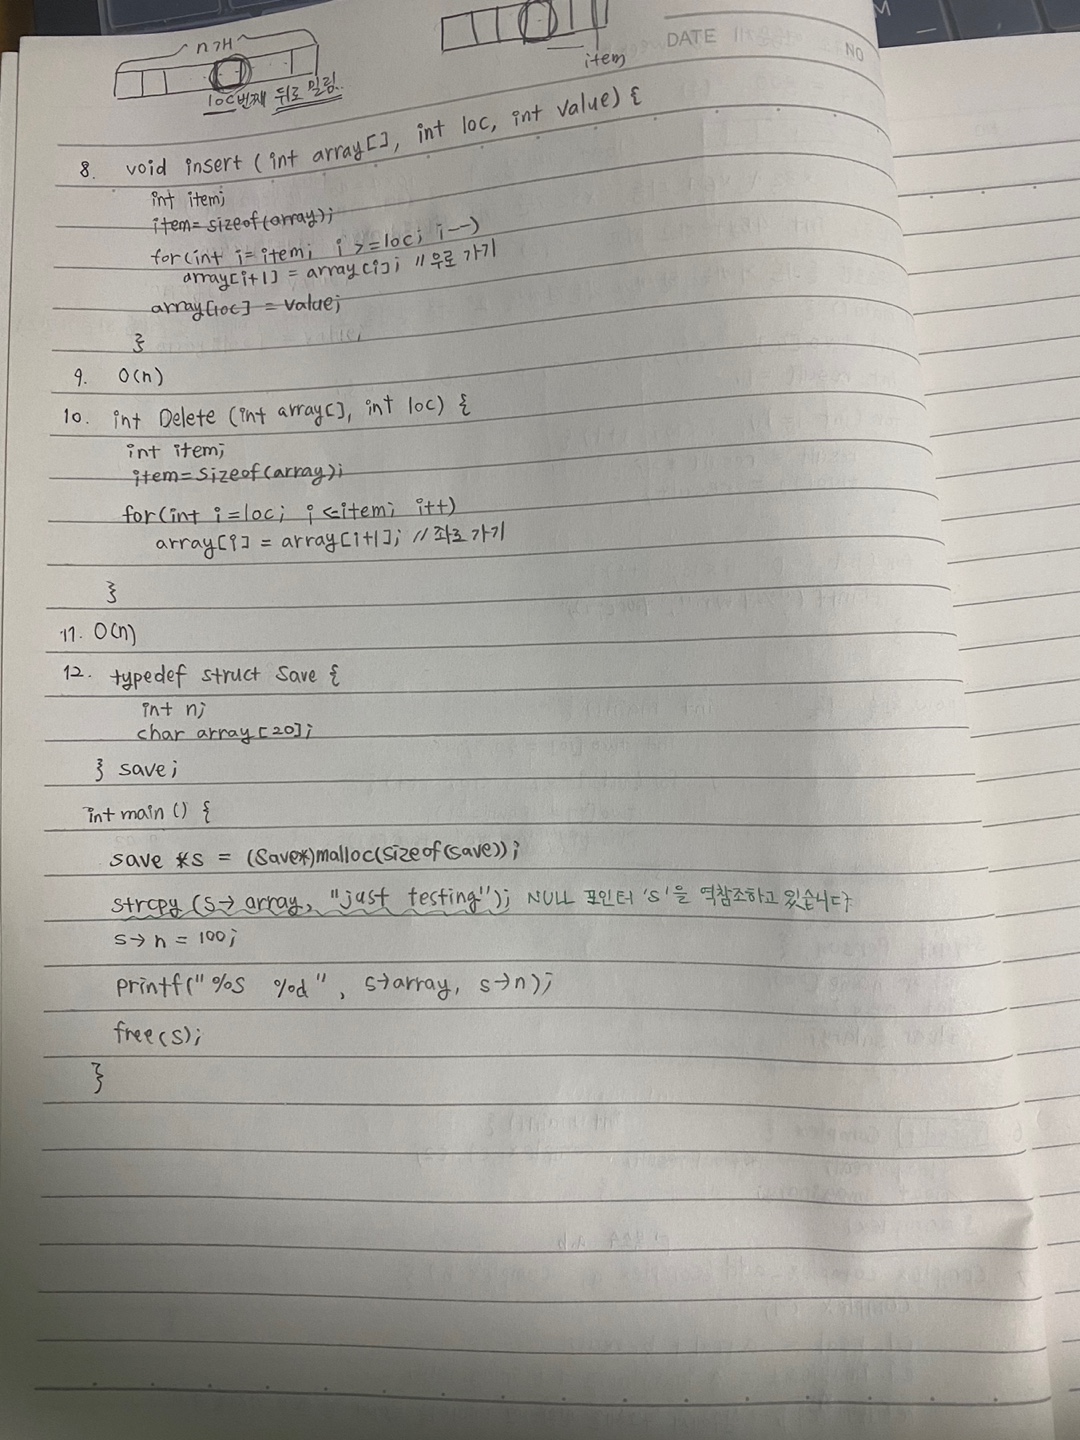 n개
item
DATE
NO
loc번째 뒤로 밀림..
8. void insert (int array[], int loc, int value) {
int item;
item= sizeof(array);
for(int i=item; i>=loc; i--)
array[i+1] = array[i]; // 우로 가기
array[loc] = value;
}
9. O(n)
10. int Delete (int array[], int loc) {
int item;
item=sizeof(array);
for(int i=loc; i<=item; i++)
array[i] = array[i+1]; // 좌로 가기
}
11. O(n)
12. typedef struct Save {
int n;
char array[20];
} save;
int main () {
save *s = (Save*)malloc(sizeof(save));
strcpy (s→array, "just testing"); NULL 포인터 's'을 역참조하고 있습니다.
s→n = 100;
printf("%s %d", s→array, s→n);
free(s);
}